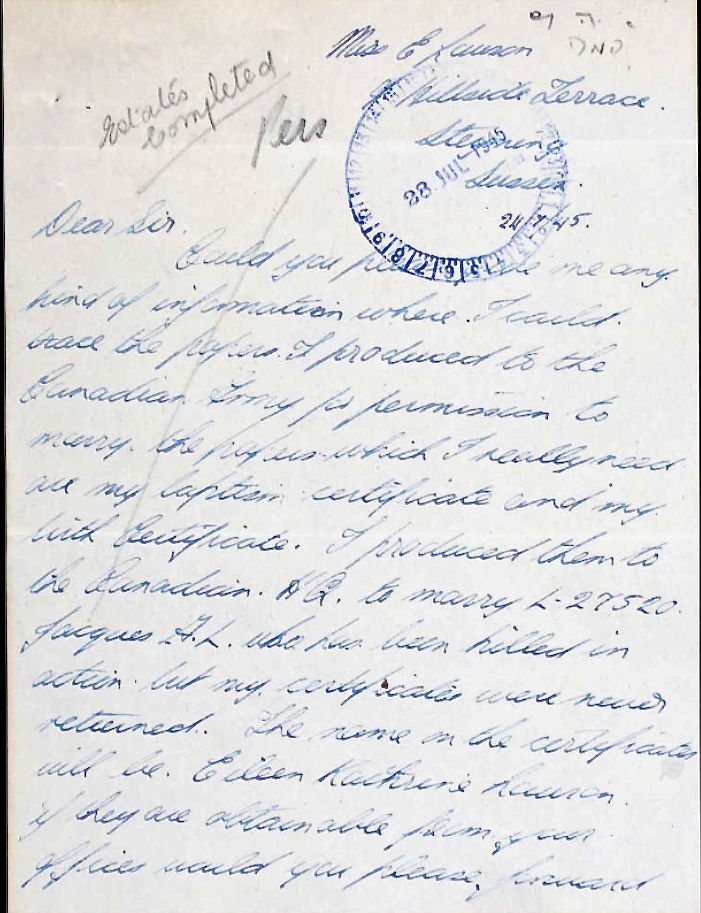 Miss E Lawson
Hillside Terrace.
Steyning
Sussex.
Estates
Completed
Pers
28 JUL 1945
24/7/45.
Dear Sir.
Could you me any
kind of information where I could.
trace the papers. I produced to the
Canadian Army for permission to
marry. the papers which I really need
are my baptism certificate and my
birth Certificate. I produced them to
the Canadian. HQ. to marry L-27520.
Jacques who has been killed in
action. but my certificates were never
returned. The name on the certificates
will be. Eileen Kathrine Lawson.
if they are obtainable from your
offices would you please, forward